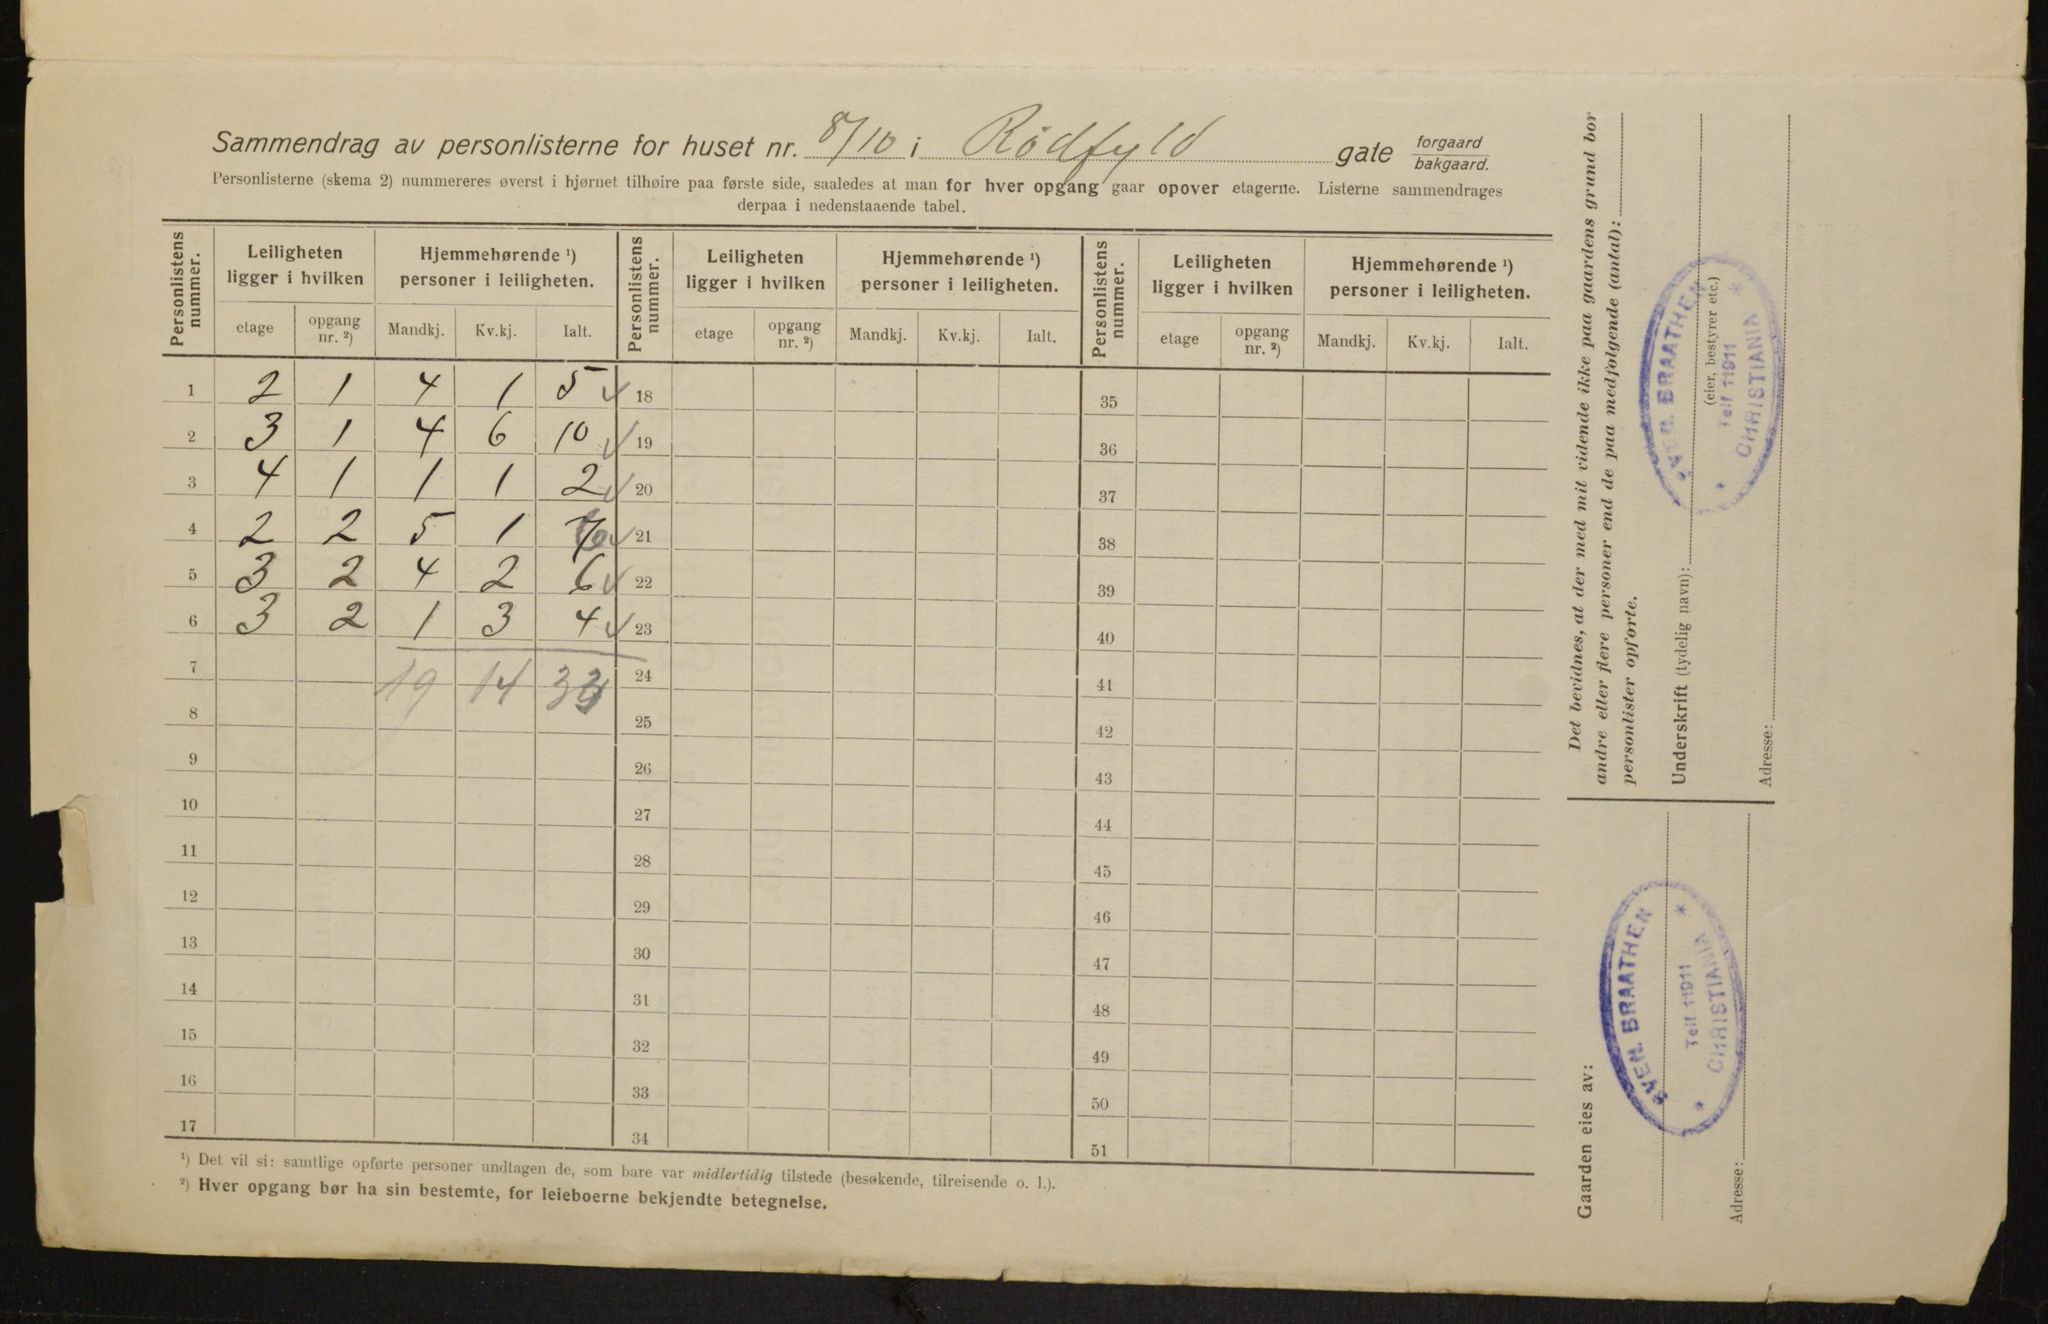 Sammendrag av personlisterne for huset nr. 8/10 i Rødfyld gate forgaard
bakgaard.
Personlisterne (skema 2) nummereres øverst i hjørnet tilhøire paa første side, saaledes at man for hver opgang gaar opover etagerne. Listerne sammendrages
derpaa i nedenstaaende tabel.
Personlistens nummer. Leiligheten ligger i hvilken Hjemmehørende ¹) personer i leiligheten. Personlistens nummer. Leiligheten ligger i hvilken Hjemmehørende ¹) personer i leiligheten. Personlistens nummer. Leiligheten ligger i hvilken Hjemmehørende ¹) personer i leiligheten.
etage opgang nr. ²) Mandkj. Kv.kj. Ialt. etage opgang nr. ²) Mandkj. Kv.kj. Ialt. etage opgang nr. ²) Mandkj. Kv.kj. Ialt.
1 2 1 4 1 5 ✓ 18 35
2 3 1 4 6 10 ✓ 19 36
3 4 1 1 1 2 ✓ 20 37
4 2 2 5 1 6 ✓ 21 38
5 3 2 4 2 6 ✓ 22 39
6 3 2 1 3 4 ✓ 23 40
7 19 14 33 24 41
8 25 42
9 26 43
10 27 44
11 28 45
12 29 46
13 30 47
14 31 48
15 32 49
16 33 50
17 34 51
¹) Det vil si: samtlige opførte personer undtagen de, som bare var midlertidig tilstede (besøkende, tilreisende o. l.).
²) Hver opgang bør ha sin bestemte, for leieboerne bekjendte betegnelse.
Det bevidnes, at der med mit vidende ikke paa gaardens grund bor
andre eller flere personer end de paa medfølgende (antal):
personlister opførte.
Underskrift (tydelig navn):
(eier, bestyrer etc.)
Adresse:
SVEN. BRAATHEN
Telf 11911
* CHRISTIANIA *
Gaarden eies av:
Adresse:
SVEN. BRAATHEN
Telf 11911
* CHRISTIANIA *